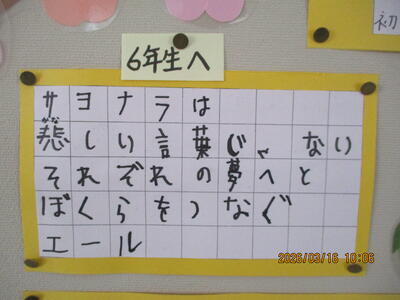 初
6年生へ
サヨナラは
悲しい言葉じゃない
かな
それぞれの夢へと
ぼくらをつなぐ
エール
2026/03/16 10:06